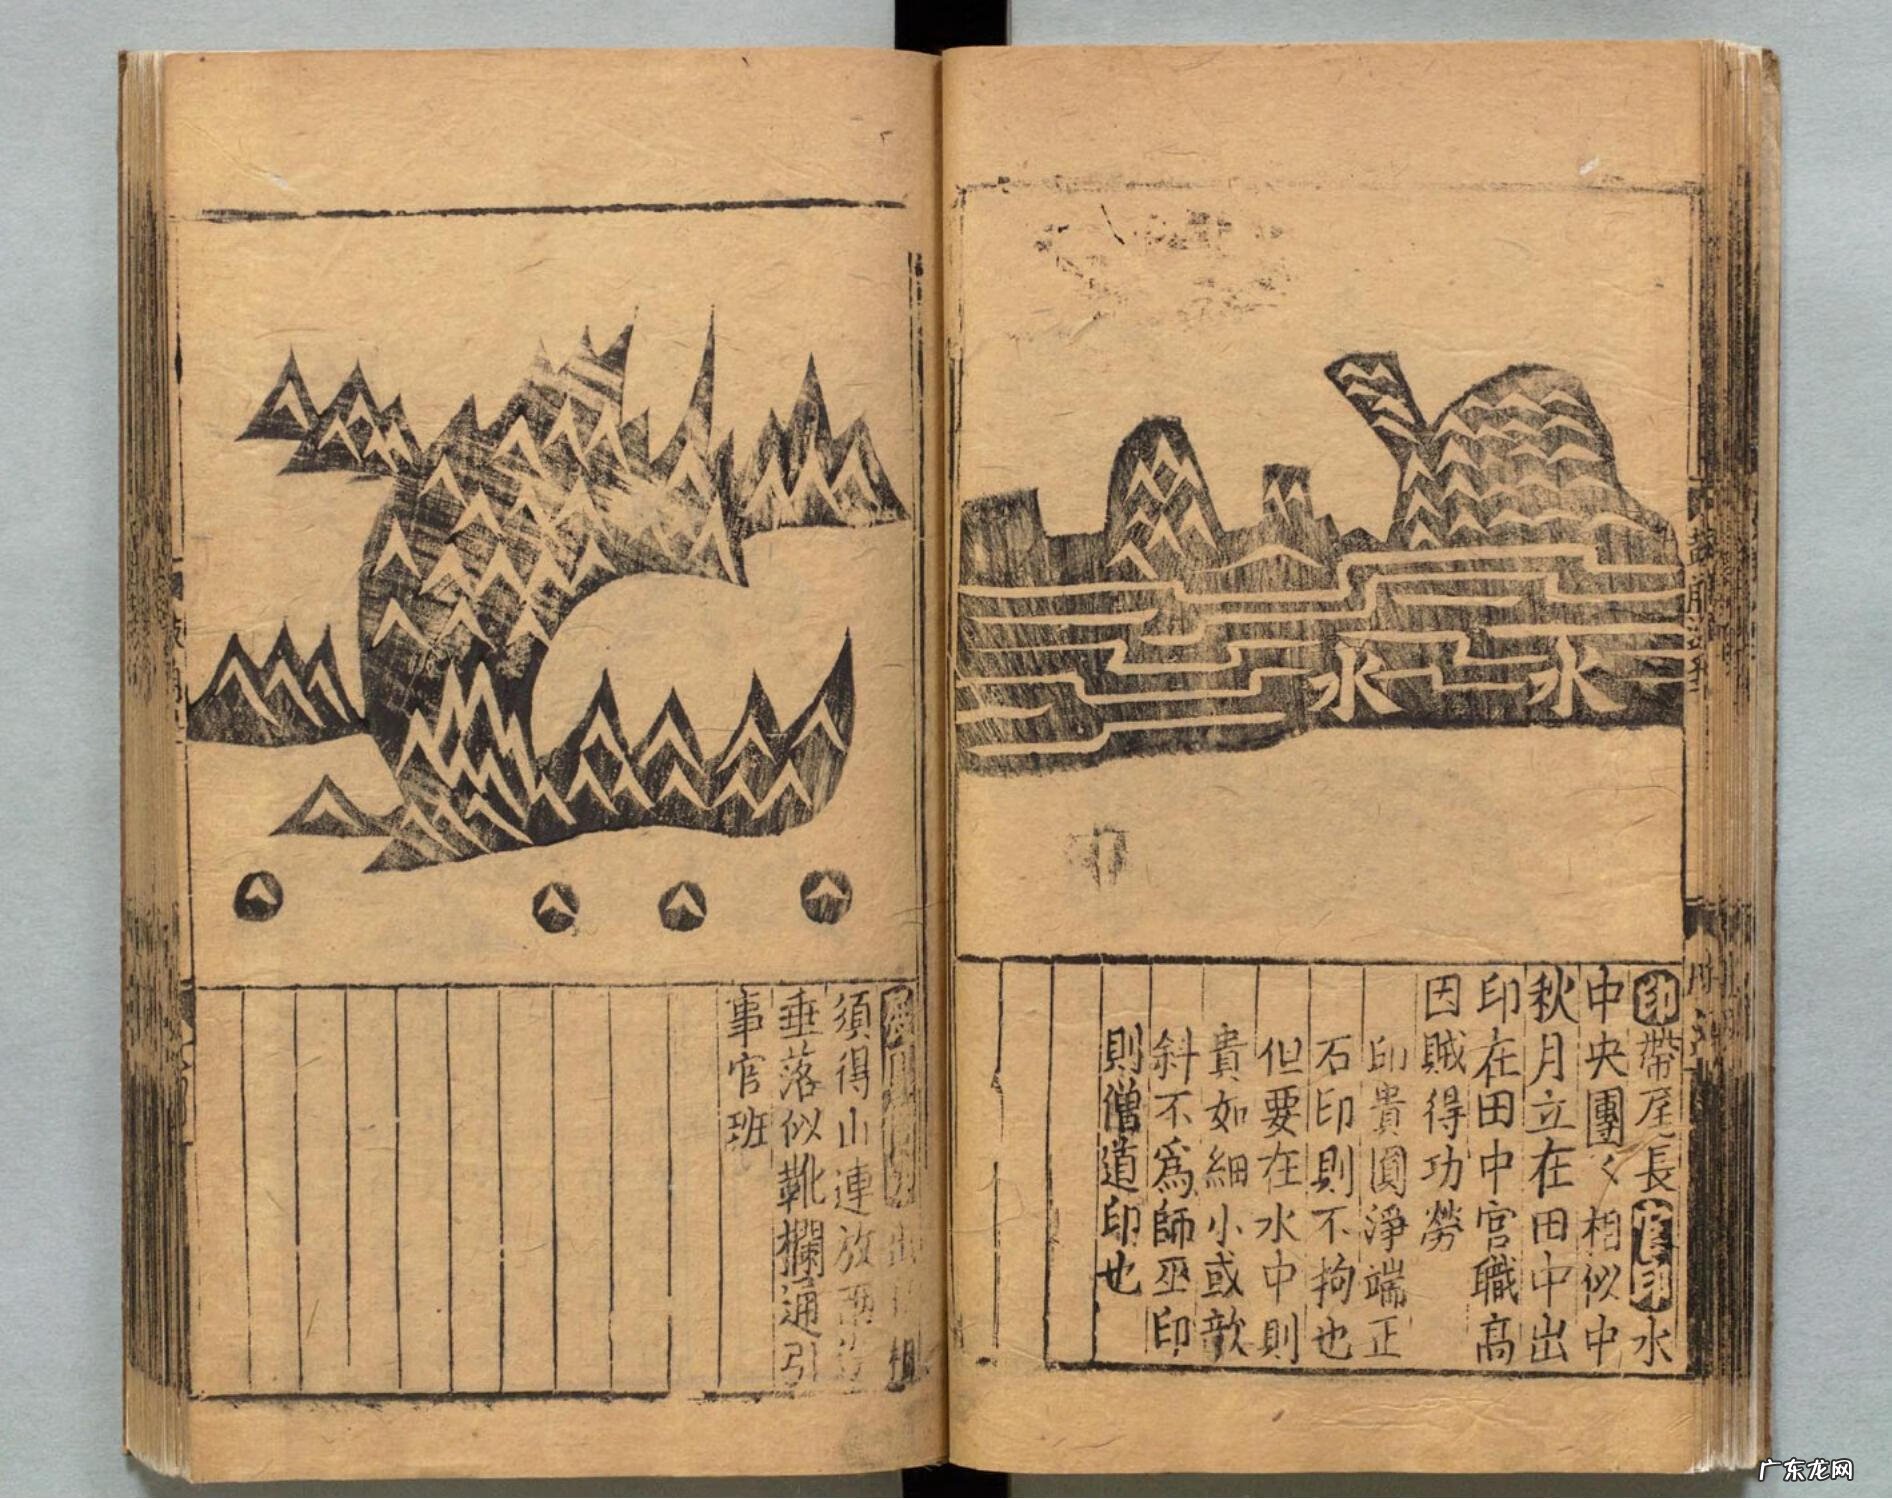 水
水
印帶尾長官印水
中央團〻相似中
秋月立在田中出
印在田中官職高
因賊得功勞
印貴圓淨端正
石印則不拘也
但要在水中則
貴如細小或歆
斜不爲師巫印
則僧道印也
須得山連放兩
垂落似靴欄通引
事官班
广东龙网